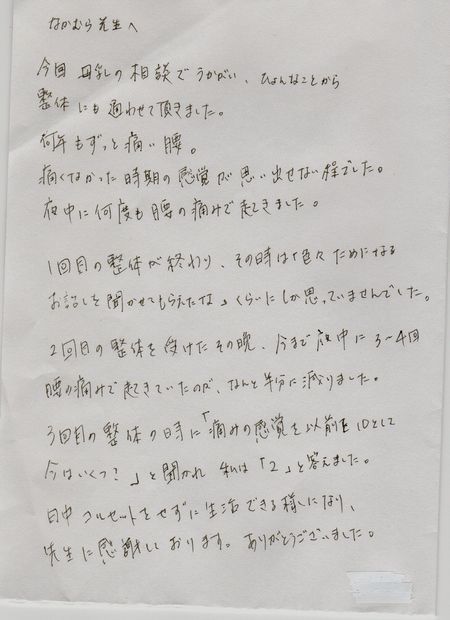 なかむら先生へ
今回 母乳の相談でうかがい、ひょんなことから
整体にも通わせて頂きました。
何年もずっと痛い腰。
痛くなかった時期の感覚が思い出せない程でした。
夜中に何度も腰の痛みで起きました。
1回目の整体が終わり、その時は「色々ためになる
お話しを聞かせてもらえたな」くらいにしか思っていませんでした。
2回目の整体を受けたその晩、今まで夜中に3〜4回
腰の痛みで起きていたのが、なんと半分に減りました。
3回目の整体の時に「痛みの感覚を以前を10として
今はいくつ?」と聞かれ 私は「2」と答えました。
日中コルセットをせずに生活できる様になり、
先生に感謝しております。ありがとうございました。